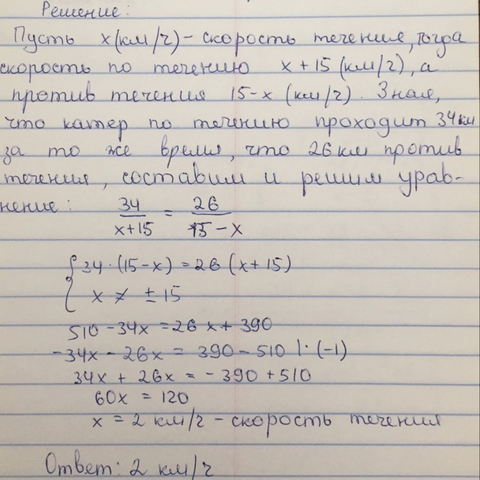 Решение:
Пусть x (км/ч) - скорость течения, тогда
скорость по течению x + 15 (км/ч), а
против течения 15-x (км/ч). Зная,
что катер по течению проходит 34 км
за то же время, что 26 км против
течения, составим и решим урав-
нение: 34/(x+15) = 26/(15-x)
{ 34 · (15-x) = 26 (x+15)
x ≠ ± 15
510 - 34x = 26x + 390
-34x - 26x = 390 - 510 | · (-1)
34x + 26x = - 390 + 510
60x = 120
x = 2 км/ч - скорость течения
Ответ: 2 км/ч